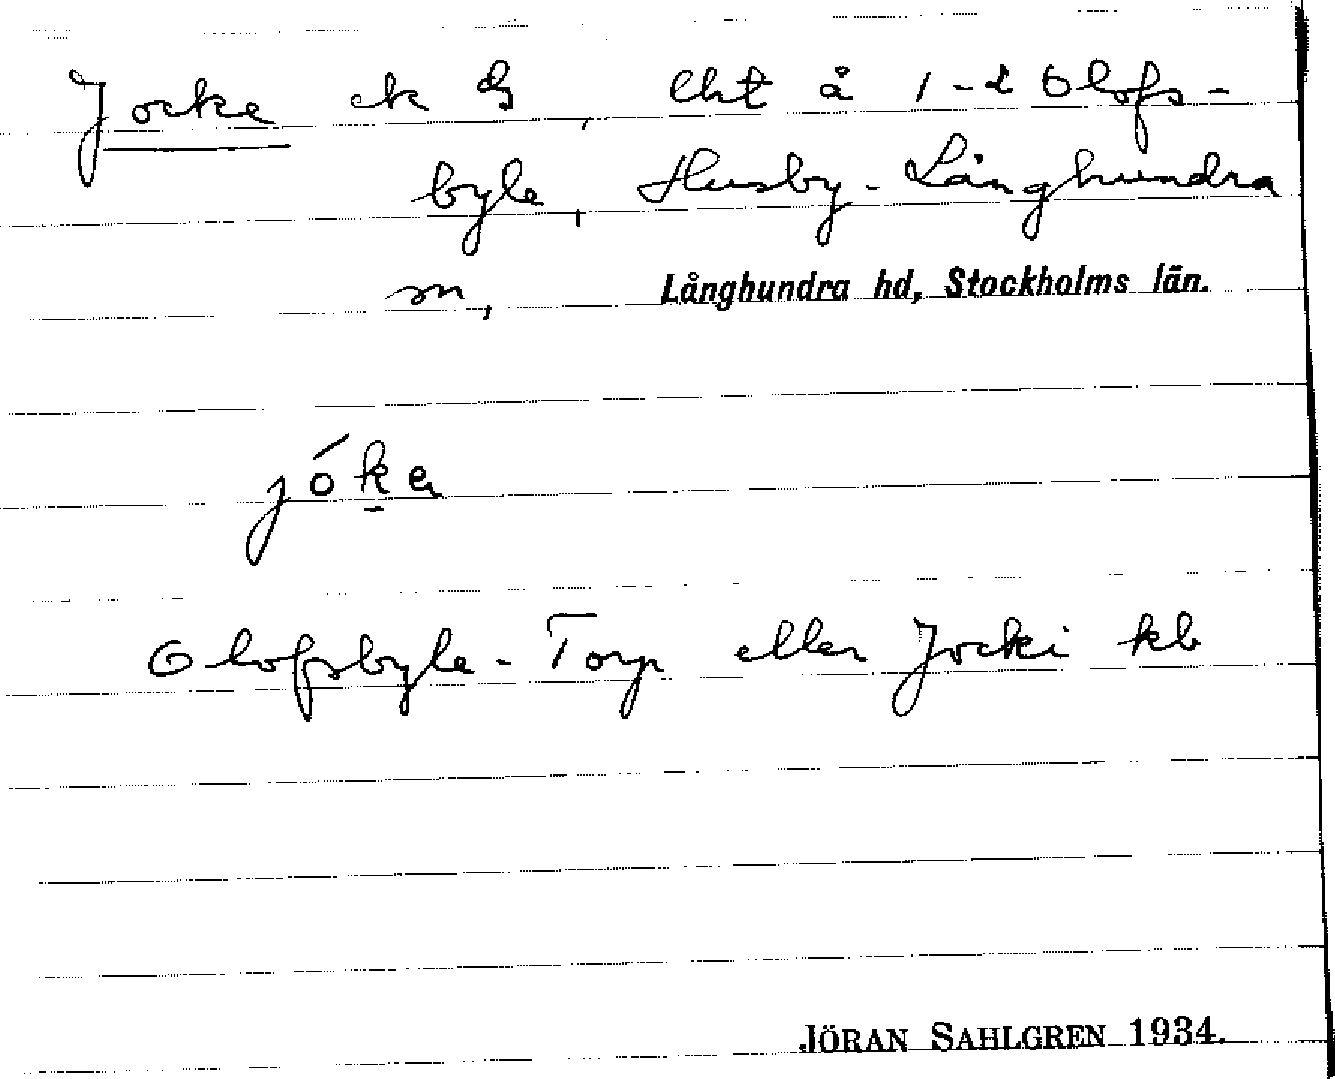 Jocke ek, lht å 1-2 Olofs-
byle, Husby-Långhundra
sn, Långhundra hd, Stockholms län.
jókɐ
Olofsbyle-Torp eller Jocki kb
JÖRAN SAHLGREN 1934.